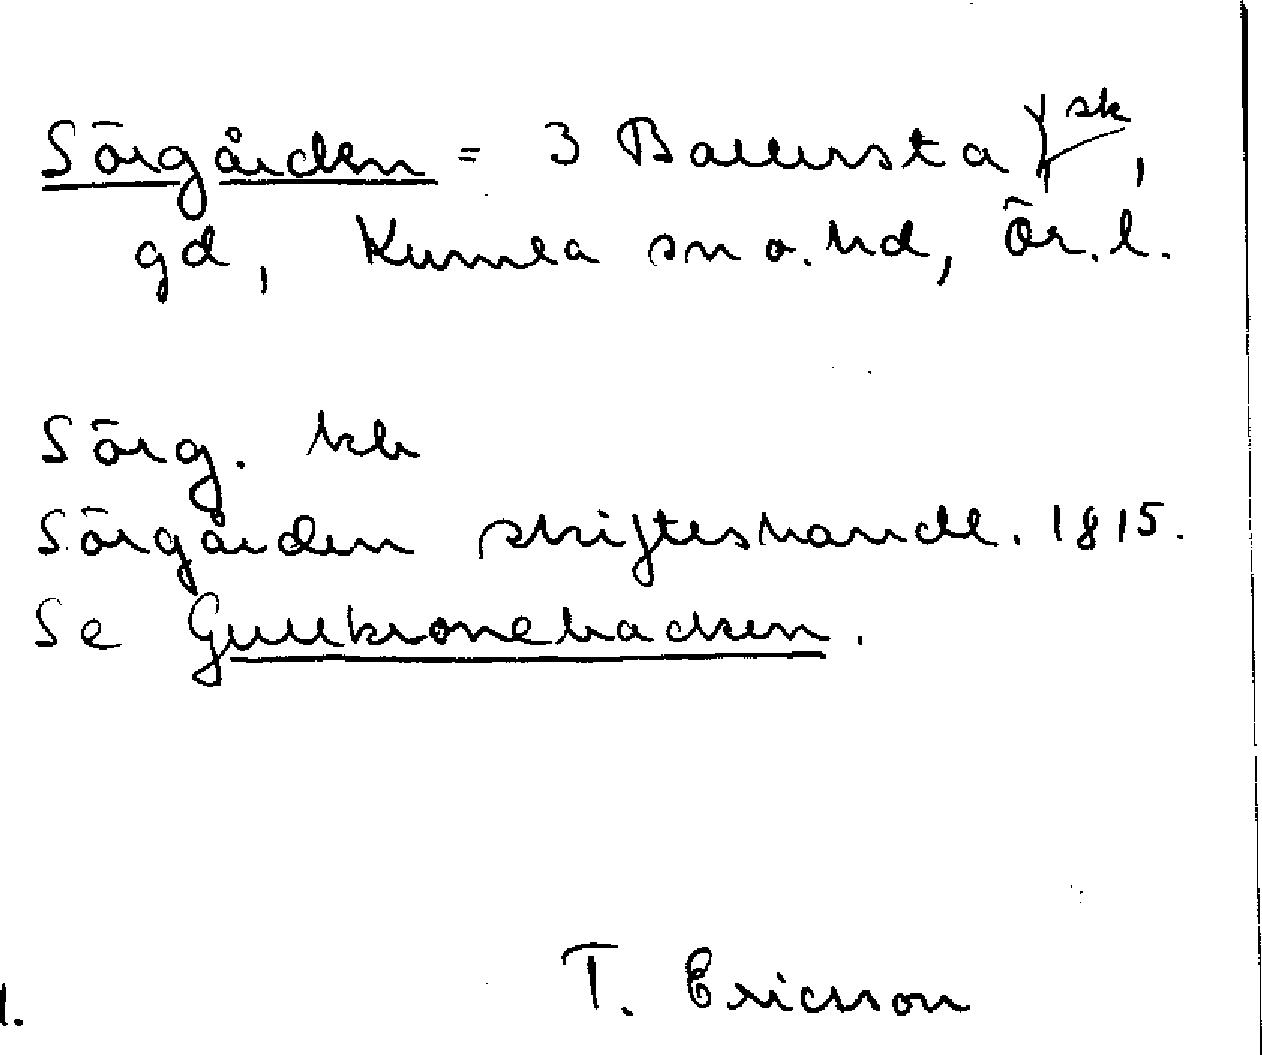 Sörgården = 3 Ballersta sk,
gd, Kumla sn o. hd, Ör. l.
Sörg. kb
Sörgården skifteshandl. 1815.
Se Gullkronebacken.
T. Ericson
l.